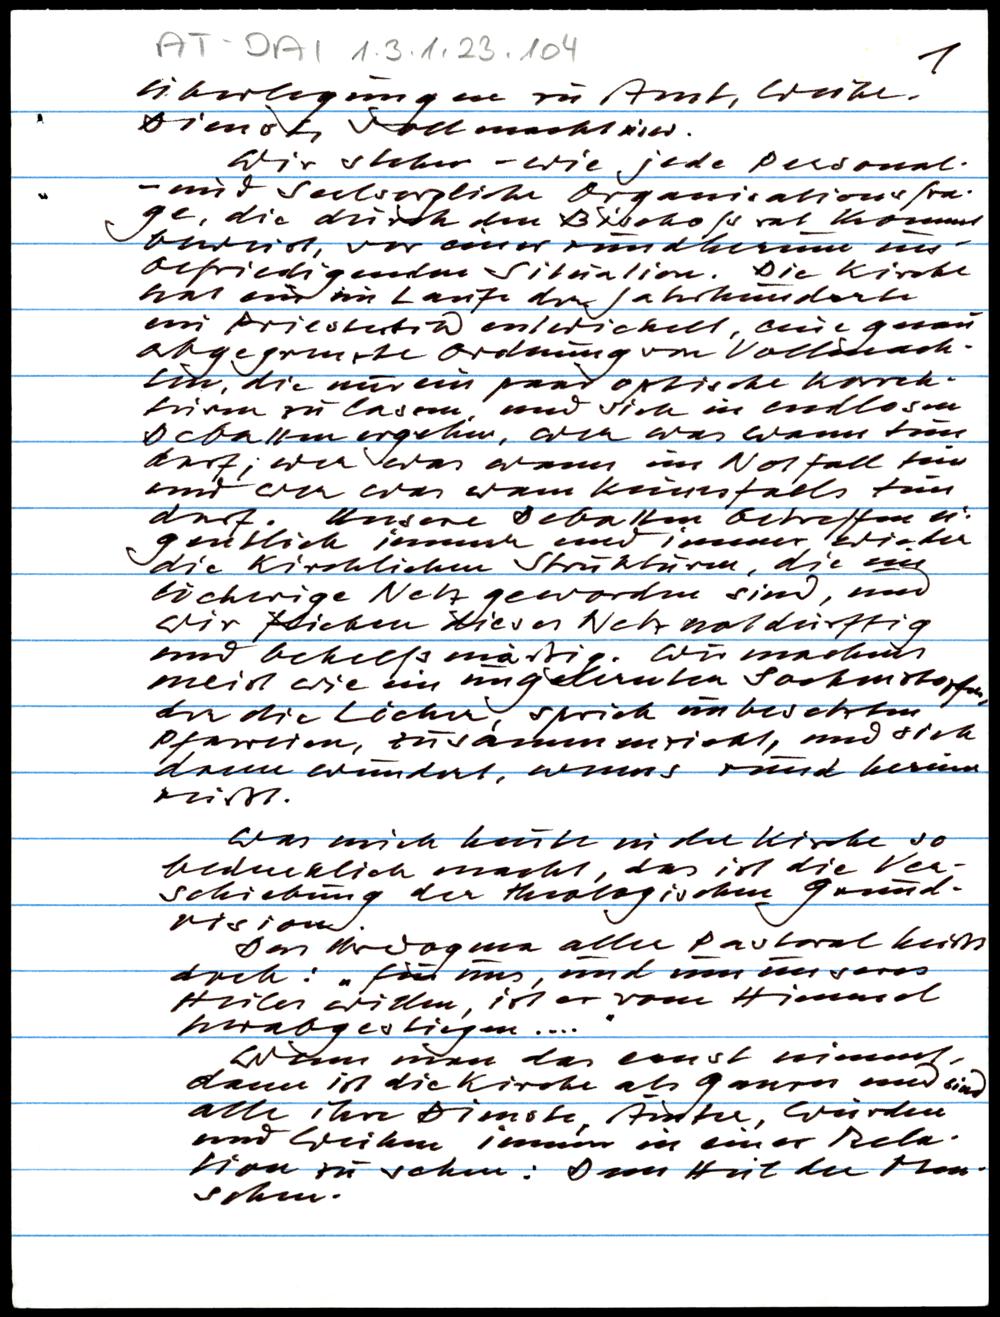 AT-DAI 1.3.1.23.104
1
Überlegungen zu Amt, Weihe.
Dienst, Vollmacht usw.
Wir stehen - wie jede Personal-
- und Seelsorgliche Organisationsfra-
ge, die durch den Bischofsrat kommt
beweist, vor einer rundherum un-
befriedigenden Situation. Die Kirche
hat im Laufe der Jahrhunderte
ein entwickelt, eine genau
abgegrenzte Ordnung von Vollmach-
ten, die nur ein paar optische Korrek-
turen zu lasen, und sich in endlosen
Debatten ergehen, wer was wann tun
darf; wer was wann im Notfall tun
und wer was wann keinesfalls tun
darf. Unsere Debatten betreffen ei-
gentlich immer und immer wieder
die kirchlichen Strukturen, die ein
löcheriges Netz geworden sind, und
wir flicken dieses Netz notdürftig
und behelfsmäßig. Wir machens
meist wie ein ungelernter Sockenstopfer,
der die Löcher, sprich unbesetzten
Pfarreien, zusammenzieht, und sich
dann wundert, wenns rund herum
reißt.
Was mich heute in der Kirche so
bedenklich macht, das ist die Ver-
schiebung der theologischen Grund-
vision.
Das Urdogma aller Pastoral heißt
doch: "für uns, und um unseres
Heiles willen, ist er vom Himmel
herabgestiegen ...."
Wenn man das ernst nimmt,
dann ist die Kirche als Ganzes und sind
alle ihre Dienste, Ämter, Würden
und Weihen immer in einer Rela-
tion zu sehen: Dem Heil der Men-
schen.